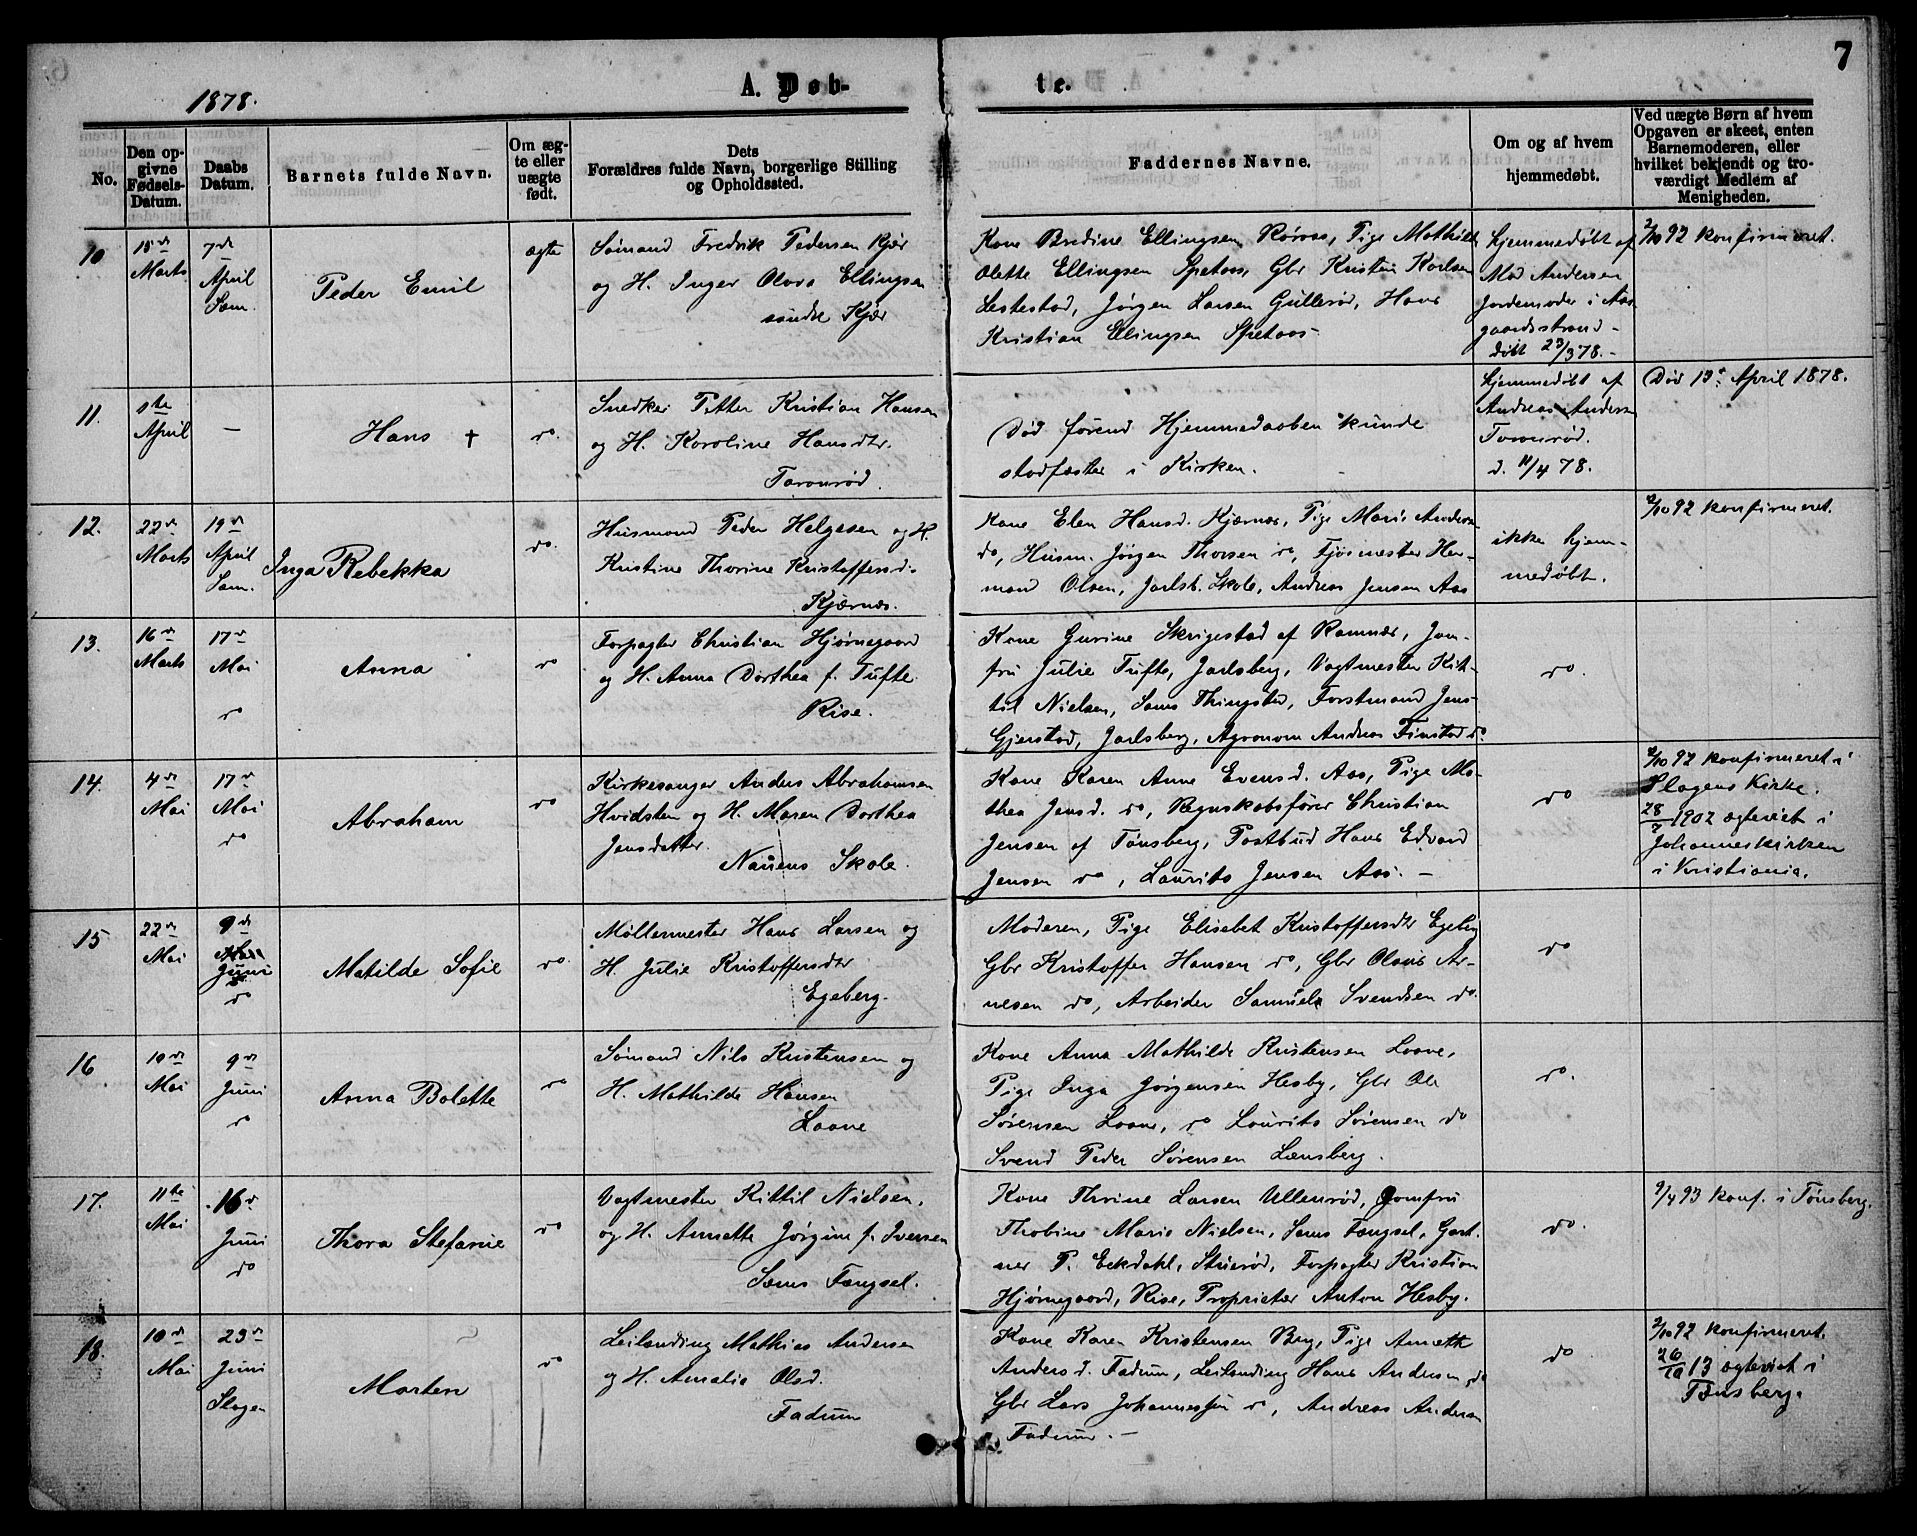 7
1878.
A. Døb-
te.
No.
Den op-
givne
Fødsels-
Datum.
Daabs
Datum.
Barnets fulde Navn.
Om æg-
te eller
uægte
født.
Dets
Forældres fulde Navn, borgerlige Stilling
og Opholdssted.
Faddernes Navne.
Om og af hvem
hjemmedøbt.
Ved uægte Børn af hvem
Opgaven er skeet, enten
Barnemoderen, eller
hvilket bekjendt og tro-
værdigt Medlem af
Menigheden.
10
15de
Marts
7de
April
Sem.
Peder Emil
ægte
Sømand Fredrik Pedersen Kjær
og H. Inger Olava Ellingsen
søndre Kjær
Kone Bredine Ellingsen Røraas, Pige Mathilde
Olette Ellingsen Spetaas, Gbr Kristen Karlsen
Lestestad, Jørgen Larsen Gullerød, Hans
Kristian Ellingsen Spetaas
Hjemmedøbt af
Mad Andersen
Jordemoder i Aas
gaardsstrand
døbt 23/3 78.
2/10 92 konfirmeret.
11.
1ste
April
—
Hans †
do.
Snedker Petter Kristian Hansen
og H. Karoline Hansdtr.
Faronrød.
Død førend Hjemmedaaben kunde
stadfæstes i Kirken.
Hjemmedøbt af
Andreas Anders
d. 11/4 78.
Død 13. April 1878.
12.
22de
Marts
19de
April
Sem.
Inga Rebekka
do.
Husmand Peder Helgesen og H.
Kristine Thorine Kristoffersd.
Kjærnæs.
Kone Elen Hansd. Kjærnæs, Pige Marie Anders
do, Husm. Jørgen Thorsen do, Fjøsmester Her-
mand Olsen, Jarlsb. Skole, Andreas Jensen Aas
ikke hjem-
medøbt.
2/10 92 konfirmeret.
13.
16de
Marts
17de
Mai
do
Anna
do
Forpagter Christian Hjørnegaard
og H. Anna Dorthea f. Tufte.
Rise.
Kone Gurine Skrigestad af Ramnæs, Jom-
fru Julie Tufte, Jarlsberg, Vagtmester Kit-
til Nielsen, Sems Thingsted, Forstmand Jens
Gjerstad, Jarlsberg, Agronom Andreas Finstad do.
do.
14.
4de
Mai
17de
Mai
do
Abraham
do
Kirkesanger Anders Abrahamsen
Hvidsten og H. Maren Dorthea
Jensdatter.
Nauens Skole.
Kone Karen Anne Evensd. Aas, Pige Ma-
thea Jensd. do, Regnskabsfører Christian
Jensen af Tønsberg, Postbud Hans Edvard
Jensen do, Laurits Jensen Aas. —
do
2/10 92 konfirmeret i
Slagens Kirke.
28/7 1902 ægteviet i
Johanneskirken
i Kristiania.
15
22de
Mai
9de
Juni
do
Matilde Sofie
do
Møllermester Hans Larsen og
H. Julie Kristoffersdtr
Egeberg.
Moderen, Pige Elisebet Kristoffersdtr Egeberg
Gbr Kristoffer Hansen do, Gbr Olaus Ar-
nesen do, Arbeider Samuel Svendsen do.
do
16
19de
Mai
9de
Juni
do
Anna Bolette
do
Sømand Nils Kristensen og
H. Mathilde Hansen
Laane
Kone Anna Mathilde Kristensen Laane,
Pige Inga Jørgensen Hesby, Gbr Ole
Sørensen Laane, do Laurits Sørensen do
Svend Peder Sørensen Lænsberg.
do.
17.
11te
Mai
16de
Juni
do
Thora Stefanie
do
Vagtmester Kittil Nielsen,
og H. Annette Jørgine f. Iversen
Sems Fængsel.
Kone Thrine Larsen Ullenrød, Jomfru
Thobine Marie Nielsen, Sems Fængsel, Gart-
ner P. Eckdahl, Stuerød, Forpagter Kristian
Hjørnegaard, Rise, Proprietær Anton Hesby.
do.
9/4 93 konf. i Tønsberg.
18.
10de
Mai
23de
Juni
Slagen
Marten
do
Leilænding Mathias Andersen
og H. Amalie Olsd.
Fadum
Kone Karen Kristensen Berg, Pige Annette
Anders d. Fadum, Leilænding Hans Andersen do
Gbr Lars Johannessen do, Andreas Andersen
Fadum. —
do
2/10 92 konfirmeret.
26/10 13 ægteviet i
Tønsberg.